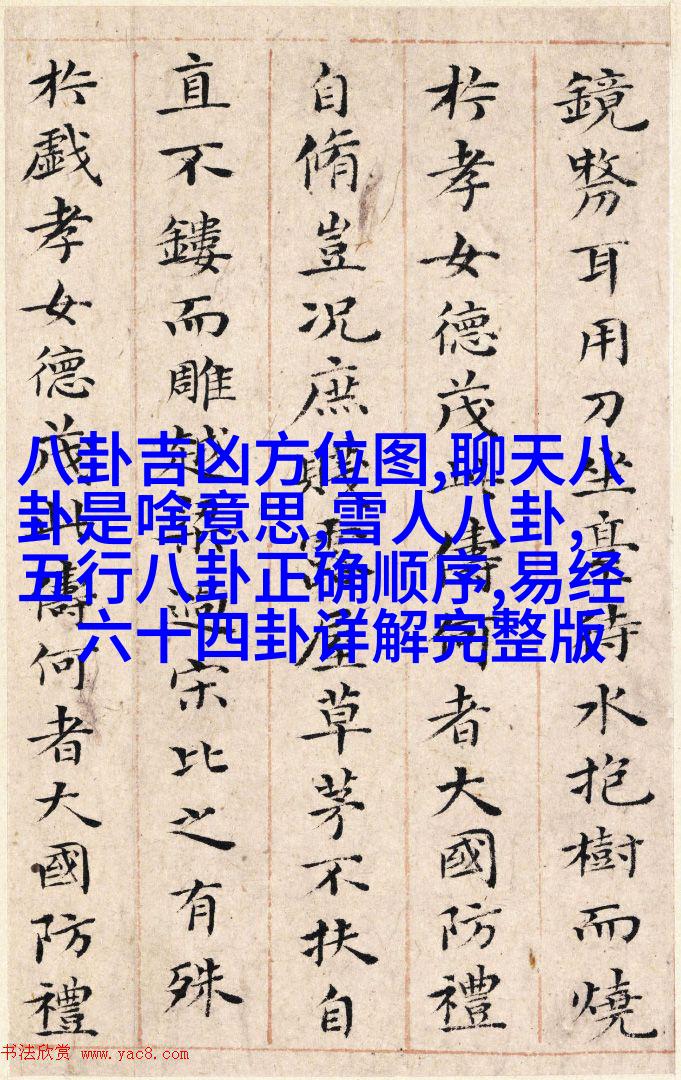 鏡耳用刀坐待水抱樹而燒
扵孝女德茂此儔何者大國防禮
自脩豈況庶賤露屋草茅不扶自
直不鏤而雕越梁過宋比之有殊
扵戱孝女德茂此儔何者大國防禮
八卦吉凶方位图,聊天八
卦是啥意思,雪人八卦,
五行八卦正确顺序,易经
六十四卦详解完整版
书法欣赏 www.yac8.com